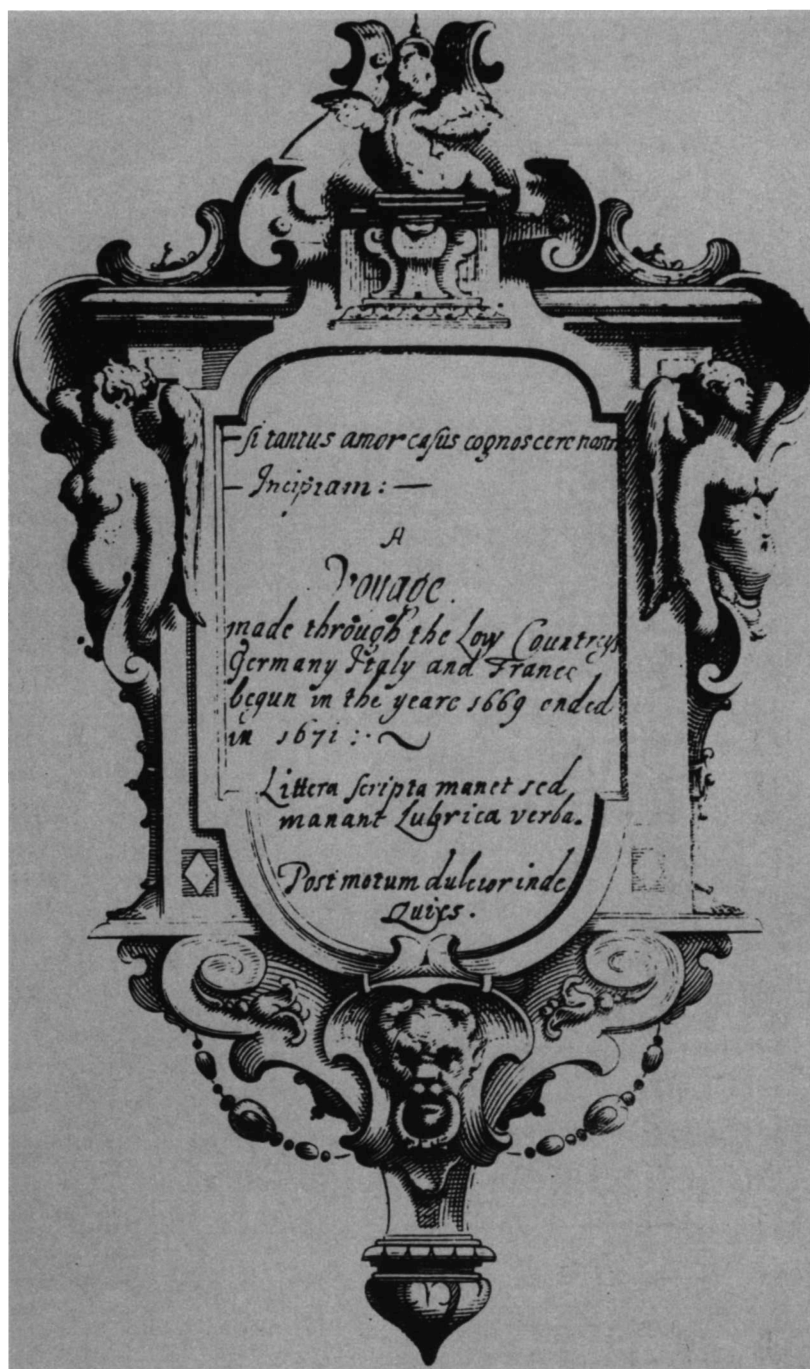 – si tantus amor casûs cognoscere nostros
– Incipiam: —
A
Voyage.
made through the Low Countreys
Germany Italy and France
begun in the yeare 1669 ended
in 1671 :· ~
Littera scripta manet sed
manant Lubrica verba.
Post motum dulcior inde
Quies.